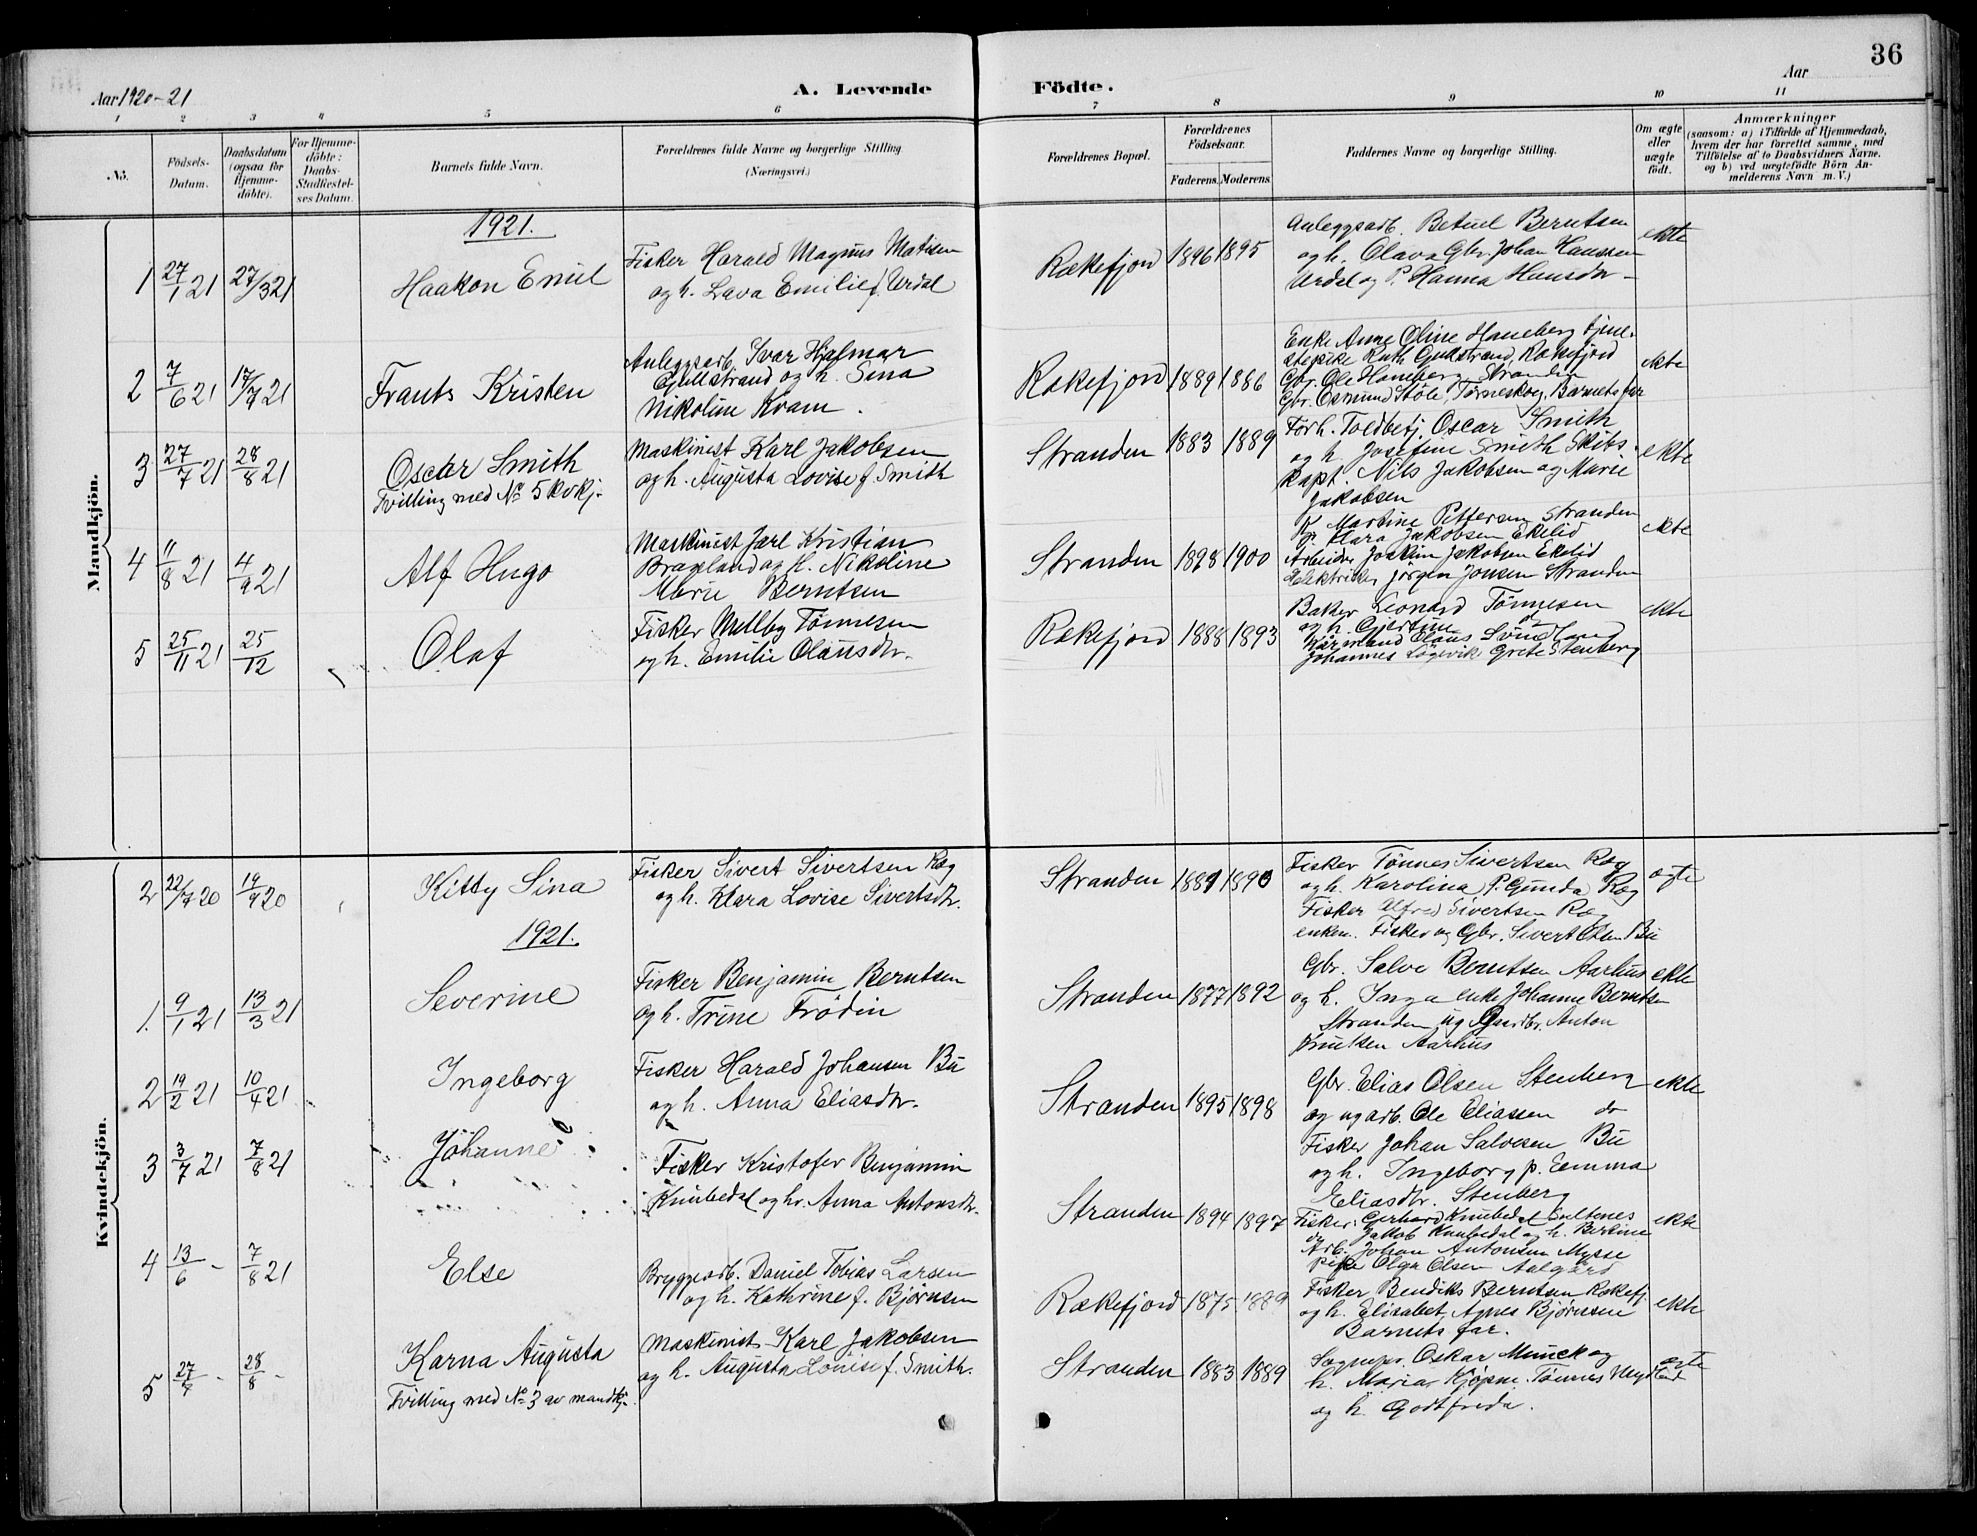 36
Aar 1920-21
A. Levende
Födte.
Aar
1 2 3 4 5 6 7 8 9 10 11
No.
Födsels-Datum.
Daabsdatum (ogsaa for Hjemme-döbte).
For Hjemme-döbte: Daabs-Stadfæstel-ses Datum.
Barnets fulde Navn.
Forældrenes fulde Navne og borgerlige Stilling.
(Næringsvei.)
Forældrenes Bopæl.
Forældrenes Födselsaar.
Faderens. Moderens.
Faddernes Navne og borgerlige Stilling.
Om ægte eller uægte födt.
Anmærkninger
(saasom: a) i Tilfælde af Hjemmedaab,
hvem der har forrettet samme, med
Tilföielse af to Daabsvidners Navne.
og b) ved uægtefödte Börn An-
melderens Navn m. V.)
Mandkjön.
1921.
1 27/1 21 27/3 21 Haakon Emil
Fisker Harald Magnus Matisen
og h. Lava Emilie f. Urdal
Rækefjord 1896 1895
Anleggsarb. Betuel Berntsen
og h. Olava Gbr. Johan Hanssen
Urdal og P. Hanna Hansdr -
ekte
2 7/6 21 17/7 21 Frants Kristen
Anleggsarb. Ivar Hjalmar
Gullstrand og h. Sina
Nikoline Kvam.
Rækefjord 1889 1886
Enke Anne Oline Haneberg tjene-
stepike Ruth Gullstrand, Rækefjord
Gbr. Ole Haneberg Stranden
Gbr. Osmund Støle, Tørneskog, Barnets far
ekte
3 27/7 21 28/8 21 Oscar Smith
Tvilling med No 5 kvkj.
Maskinist Karl Jakobsen
og h. Augusta Lovise f. Smith
Stranden 1883 1889
Førh. Toldbetj. Oscar Smith
og h. Josefine Smith Skibs-
kapt. Nils Jakobsen og Marie
Jakobsen
ekte
4 11/8 21 4/9 21 Alf Hugo
Maskinist Jarl Kristian
Bragland og h. Nikoline
Marie Berntsen
Stranden 1898 1900
Martine Pettersen Stranden
Klara Jakobsen Ekelid
Arbeider Joakim Jakobsen Ekelid
Elektriker Jörgen Jonsen Stranden
ekte
5 25/11 21 25/12 Olaf
Fisker Mellby Tønnesen
og h. Emilie Olausdtr.
Rækefjord 1888 1893
Baker Leonard Tönnesen
og h. Gjertine do
Olaus
Johannes Løgevik Grete Stenberg
ekte
Kvindekjön.
2 22/7 20 19/9 20 Kitty Sina
Fisker Sivert Sivertsen Ræg
og h. Klara Lovise Sivertsdtr.
Stranden 1889 1890
Fisker Tönnes Sivertsen Ræg
og h. Karolina P. Gunda Ræg
Fisker Alfred Sivertsen Ræg
enkem. Fisker og Gbr. Sivert Olsen Bu
ægte
1921.
1. 9/1 21 13/3 21 Severine
Fisker Benjamin Berntsen
og h. Trine Frödin
Stranden 1877 1892
Gbr. Salve Berntsen Aarhus
og h. Inga enke Johanne Berntsen
Stranden ug Anton
Knutsen Aarhus
ekte
2 19/2 21 10/4 21 Ingeborg
Fisker Harald Johansen Bu
og h. Anna Eliasdtr.
Stranden 1895 1898
Gbr. Elias Olsen Stenberg
og ugarb. Ole Eliassen do
Fisker Johan Salvesen Bu
og h. Ingeborg p. Emma
Eliasdtr. Stenberg
ekte
3 3/7 21 7/8 21 Johanne
Fisker Kristofer Benjamin
Knubedal og h. Anna Antonsdtr.
Stranden 1894 1897
Fisker Gerhard Knubedal
do Jakob Knubedal og h. Bertine
Arb. Johan Antonsen Mysse
Pike Olga Olsen Aalgård
ekte
4 13/6 - 7/8 21 Else
Bryggearb. Daniel Tobias Larsen
og h. Kathrine f. Bjørnsen
Rækefjord 1875 1889
Fisker Bendiks Berntsen Rækefj
og h. Elisabet, Agnes Bjørnsen
Barnets far.
ekte
5 27/7 - 28/8 - Karna Augusta
Tvilling med No 3 av mandkj.
Maskinist Karl Jakobsen
og h. Augusta Louise f. Smith.
Stranden 1883 1889
Oskar Munck og
h. Maria Kjøpm. Tönnes
og h. Godtfreda.
ægte